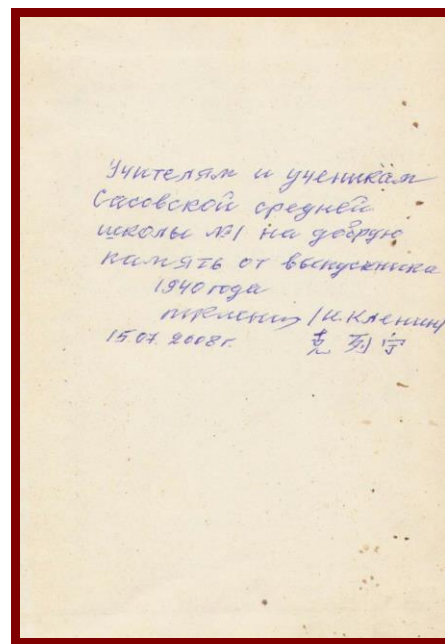 Учителям и ученикам
Сасовской средней
школы №1 на добрую
память от выпускника
1940 года
/И. Кленин/
15.07.2008г. 克列宁